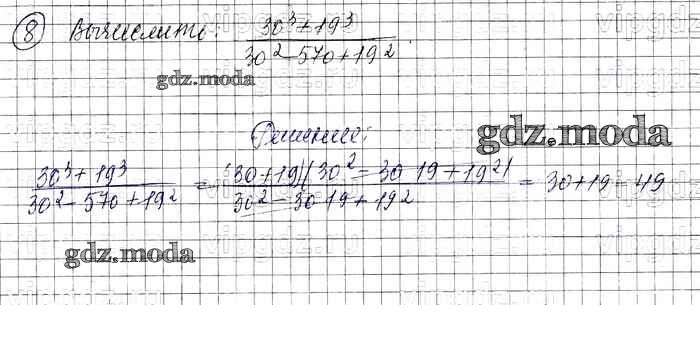 8 Вычислить: (30³ + 19³)/(30² - 570 + 19²)
gdz.moda
Решение:
gdz.moda
(30³ + 19³)/(30² - 570 + 19²) = (30 + 19)(30² - 30 19 + 19²)/(30² - 30 19 + 19²) = 30 + 19 = 49
gdz.moda